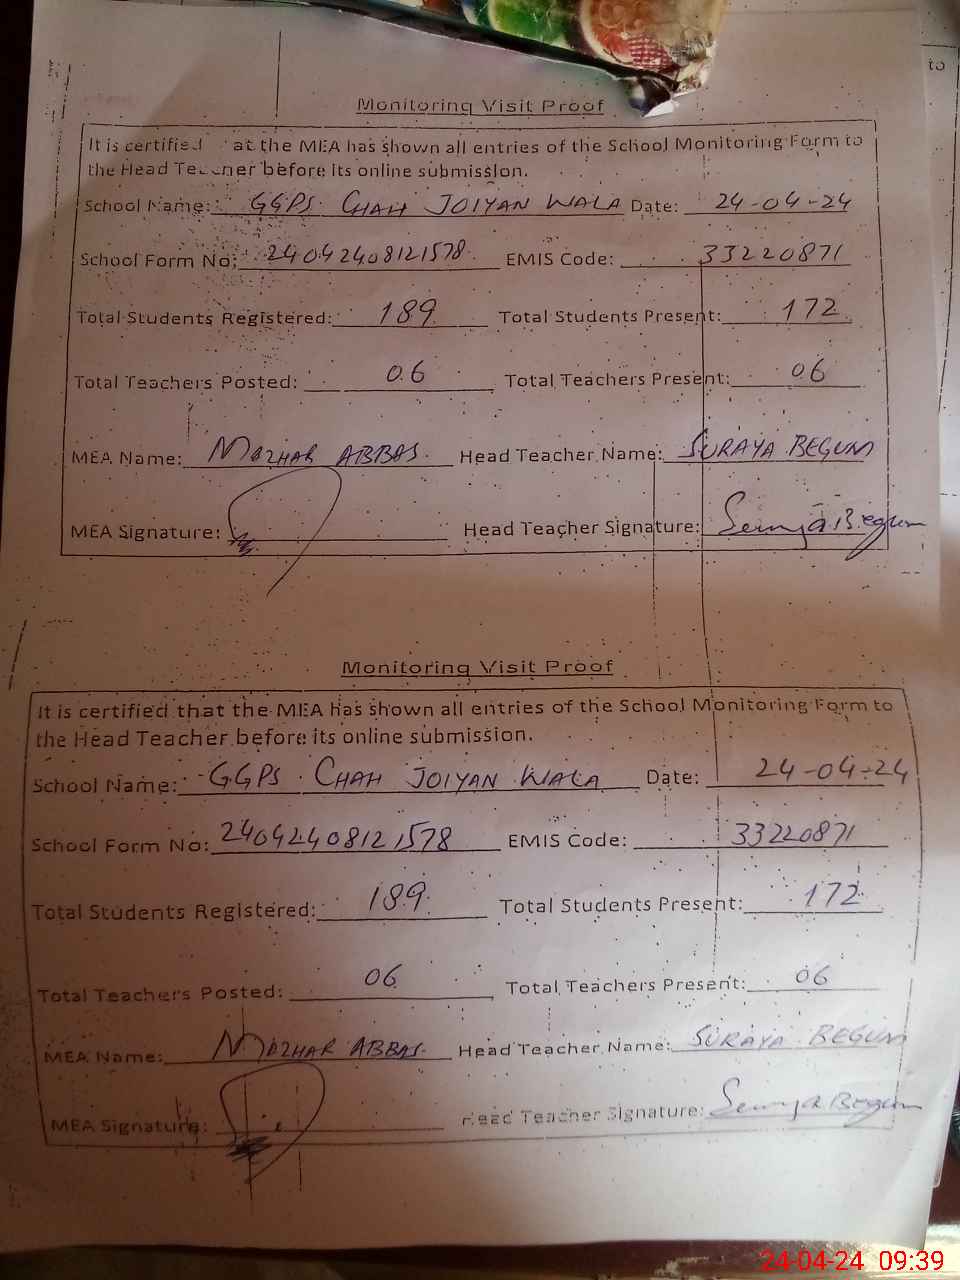 to
Monitoring Visit Proof
It is certified at the MEA has shown all entries of the School Monitoring Form to
the Head Teacher before its online submission.
School Name: GGPS. CHAH JOIYAN WALA Date: 24-04-24
School Form No: 24042408121578 EMIS Code: 33220871
Total Students Registered: 189 Total Students Present: 172
Total Teachers Posted: 06 Total Teachers Present: 06
MEA Name: MAZHAR ABBAS. Head Teacher Name: SURAYA BEGUM
MEA Signature: Head Teacher Signature: Suraya Begum
Monitoring Visit Proof
It is certified that the MEA has shown all entries of the School Monitoring Form to
the Head Teacher before its online submission.
School Name: GGPS. CHAH JOIYAN WALA Date: 24-04-24
School Form No: 24042408121578 EMIS Code: 33220871
Total Students Registered: 189 Total Students Present: 172
Total Teachers Posted: 06 Total Teachers Present: 06
MEA Name: MAZHAR ABBAS. Head Teacher Name: SURAYA BEGUM
MEA Signature: Head Teacher Signature: Suraya Begum
24-04-24 09:39